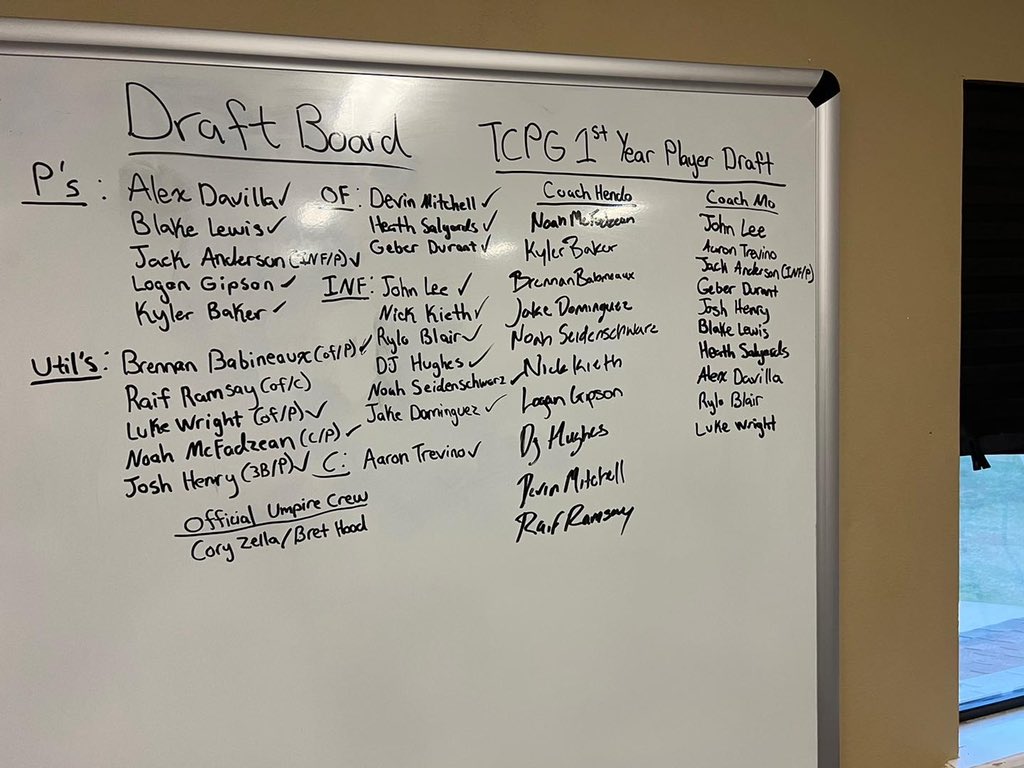 Draft Board
P's: Alex Davilla ✓
Blake Lewis ✓
Jack Anderson (INF/P) ✓
Logan Gipson ✓
Kyler Baker ✓
Util's: Brennan Babineaux (of/P) ✓
Raif Ramsay (of/c)
Luke Wright (of/P) ✓
Noah McFadzean (C/P) ✓
Josh Henry (3B/P) ✓
OF: Devin Mitchell ✓
Heath Salyards ✓
Geber Durant ✓
INF: John Lee ✓
Nick Kieth ✓
Rylo Blair ✓
DJ Hughes ✓
Noah Seidenschwarz ✓
Jake Dominguez ✓
C: Aaron Trevino ✓
Official Umpire Crew
Cory Zella/Bret Hood
TCPG 1st Year Player Draft
Coach Hendo
Noah McFadzean
Kyler Baker
Brennan Babineaux
Jake Dominguez
Noah Seidenschwarz
Nick Kieth
Logan Gipson
Dj Hughes
Devin Mitchell
Raif Ramsay
Coach Mo
John Lee
Aaron Trevino
Jack Anderson (INF/P)
Geber Durant
Josh Henry
Blake Lewis
Heath Salyards
Alex Davilla
Rylo Blair
Luke Wright